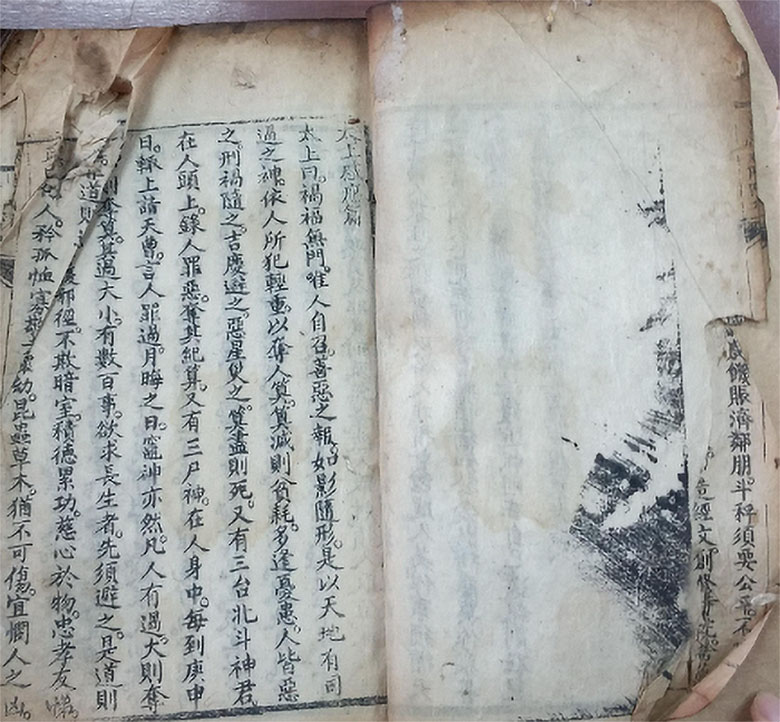 歲饑賑濟鄰朋。斗秤須要公平。不
造經文。創修寺院。
太上感應篇
太上曰。禍福無門。唯人自召。善惡之報。如影隨形。是以天地有司
過之神。依人所犯輕重。以奪人算。算減則貧耗。多逢憂患。人皆惡
之。刑禍隨之。吉慶避之。惡星災之。算盡則死。又有三台北斗神君。
在人頭上。錄人罪惡。奪其紀算。又有三尸神。在人身中。每到庚申
日。輒上詣天曹。言人罪過。月晦之日。竈神亦然。凡人有過。大則奪
則奪算。其過大小。有數百事。欲求長生者。先須避之。是道則
非道則履邪徑。不欺暗室。積德累功。慈心於物。忠孝友悌。
正己化人。矜孤恤寡。敬幼。昆蟲草木。猶不可傷。宜憫人之凶。